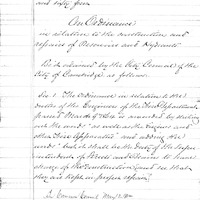 and sixty four
An Ordinance
in relation to the construction and
repairs of Reservoirs and Hydrants
Be it ordained by the City Council of the
City of Cambridge as follows.
Sec. 1. The Ordinance in relation to the
duties of the Engineers of the Fire Department
passed March 9 is amended by striking
out the words "as well as the Engines and
other Fire Apparatus" and adding the
words "but it shall be the duty of the Super
intendent of Streets and to have
charge of the construction and see that
they are kept in proper repair
In Common Council May